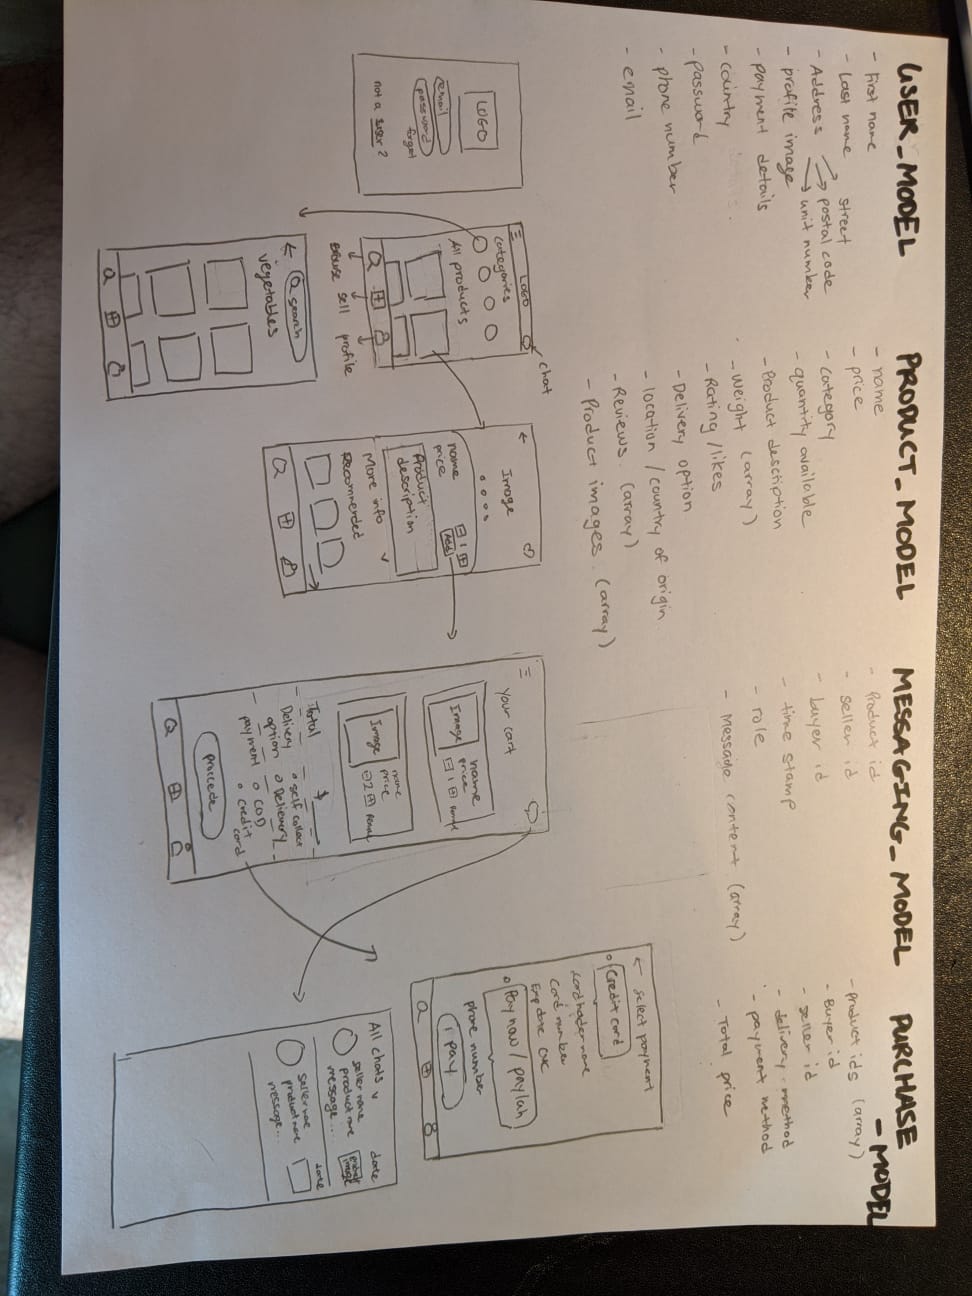 USER_MODEL
- First name
- Last name
- Address
street
postal code
unit number
- profile image
- payment details
- country
- password
- phone number
- email
PRODUCT_MODEL
- name
- price
- category
- quantity available
- Product description
- Weight (array)
- Rating/likes
- Delivery option
- location / country of origin
- Reviews. (array)
- Product images. (array)
MESSAGING_MODEL
- Product id
- seller id
- buyer id
- time stamp
- role
- Message content (array)
PURCHASE
-MODEL
- Product ids (array)
- Buyer id
- seller id
- delivery method
- payment method
- Total price
LOGO
email
password
forgot
not a user?
chat
LOGO
categories
All products
Browse
sell
profile
search
vegetables
Image
name
price
1
Add
Product
description
More info
Recommended
Your cart
Image
name
price
1
Remove
Image
name
price
2
Remove
Total $
Delivery
option
self collect
Delievery
payment
COD
credit
card
Proccede
select payment
Credit card
Card number
Exp date CVC
Pay now / paylah
phone number
pay
All chats
date
seller name
product name
message...
product
image
date
seller name
product name
message...